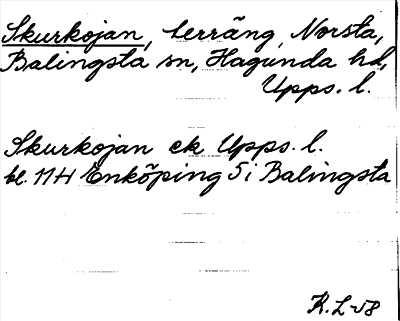 Skurkojan, terräng, Norsta,
Balingsta sn, Hagunda hd,
Upps. l.
Skurkojan ek Upps. l.
bl. 11H Enköping 5i Balingsta
R.L-58